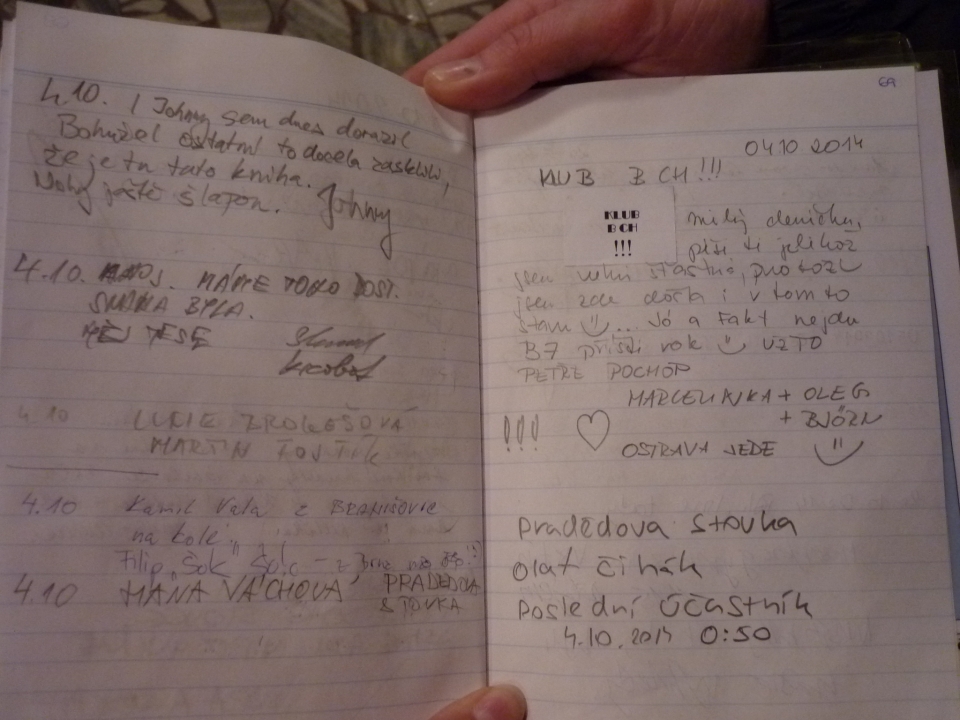 4.10. I Johny sem dnes dorazil
Bohužel ostatní to docela zasklili,
že je tu tato kniha.
ještě šlapou. Johny
4.10. MÁME TOHO DOST.
BYLA.
4.10 LUCIE
MARTIN FOJTÍK
4.10 Kamil Vala z
na kole
Filip "Šok" Šolc - z
4.10 HANA VÁCHOVÁ PRADĚDOVA
STOVKA
69
04.10 2014
KLUB B CH !!!
KLUB
B CH
!!!
milý deníčku,
píši ti jelikož
jsem velmi šťastná, protože
jsem zde došla i v tomto
stavu ... Jó a fakt nejdu
B7 příští rok
PETRE POCHOP
MARCELINKA + OLEG
+ BJÖRN
!!! OSTRAVA JEDE
Pradědova stovka
olaf čihák
Poslední účastník
4.10.2014 0:50